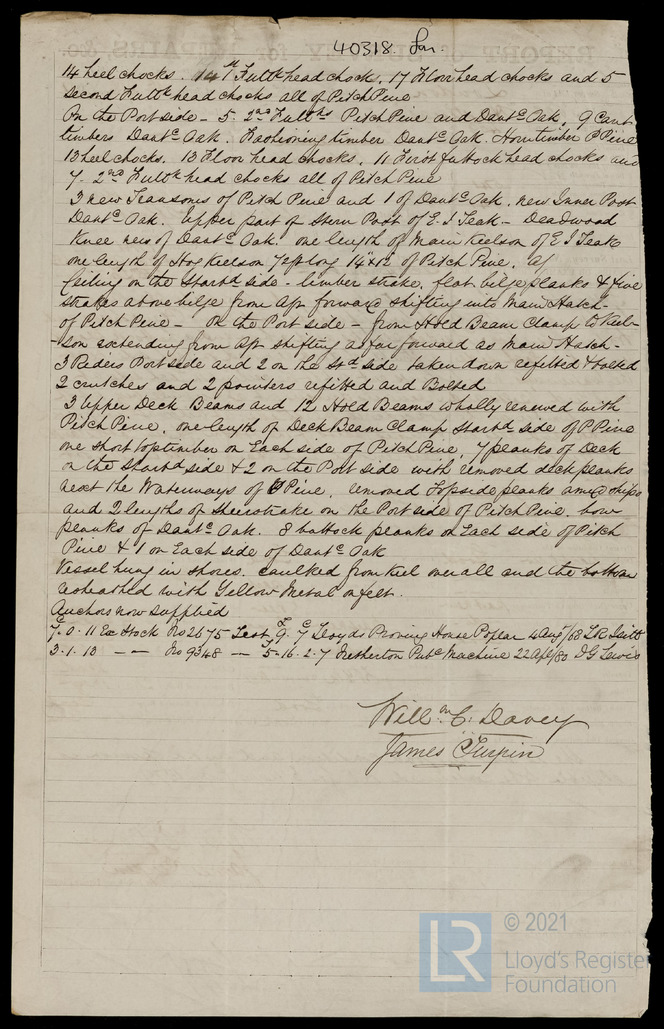 40318 Lon.
14 heel chocks. 14 1st Futtk head chock, 17 Floor head chocks and 5
second Futtk head chocks all of Pitch Pine
On the Port side - 5. 2nd Futtks Pitch Pine and Dantc Oak, 9 Cant
timbers Dantc Oak. Fashioning timber Dantc Oak. Horn timber P Pine
13 heel chocks. 13 Floor head chocks, 11 First futtock head chocks and
7. 2nd Futtk head chocks all of Pitch Pine
3 new Transoms of Pitch Pine and 1 of Dantc Oak. new Inner Post
Dantc Oak. Upper part of Stern Post of E. I Teak - Deadwood
Knee new of Dantc Oak. one length of Main Keelson of E I Teak
one length of Hog Keelson 72ft long 14"x12 of Pitch Pine.
Ceiling on the Starbd side - limber strake, flat bilge planks & five
strakes above bilge from Aft forward shifting into Main Hatch
of Pitch Pine - On the Port side - from Hold Beam Clamp to Keel-
-son extending from Aft shifting as far forward as Main Hatch -
3 Riders Port side and 2 on the Std side taken down refitted & bolted
2 crutches and 2 pointers refitted and Bolted
3 Upper Deck Beams and 12 Hold Beams wholly renewed with
Pitch Pine, one length of Deck Beam Clamp Starbd side of P Pine
one short toptimber on Each side of Pitch Pine, 7 planks of Deck
on the Starbd side & 2 on the Port side with removed deck planks
next the Waterways of Pine, removed Topside planks amidships
and 2 lengths of Sheerstrake on the Port side of Pitch Pine. bow
planks of Dantc Oak. 8 buttock planks on Each side of Pitch
Pine & 1 on Each side of Dantc Oak
Vessel hung in shores. caulked from Keel overall and the bottom
resheathed with Yellow Metal on felt.
Anchors now supplied
7. 0. 11 Ex Stock No 2675 Test 9. 7 Lloyds Proving House Poplar 4 Augt/68
3. 1. 13 - - No 9348 - 5. 16. 2. 7 Netherton Pubc Machine 22 Apl/80 J G Lewis
Willm C. Davey
James Turpin
LR
© 2021
Lloyd's Register
Foundation